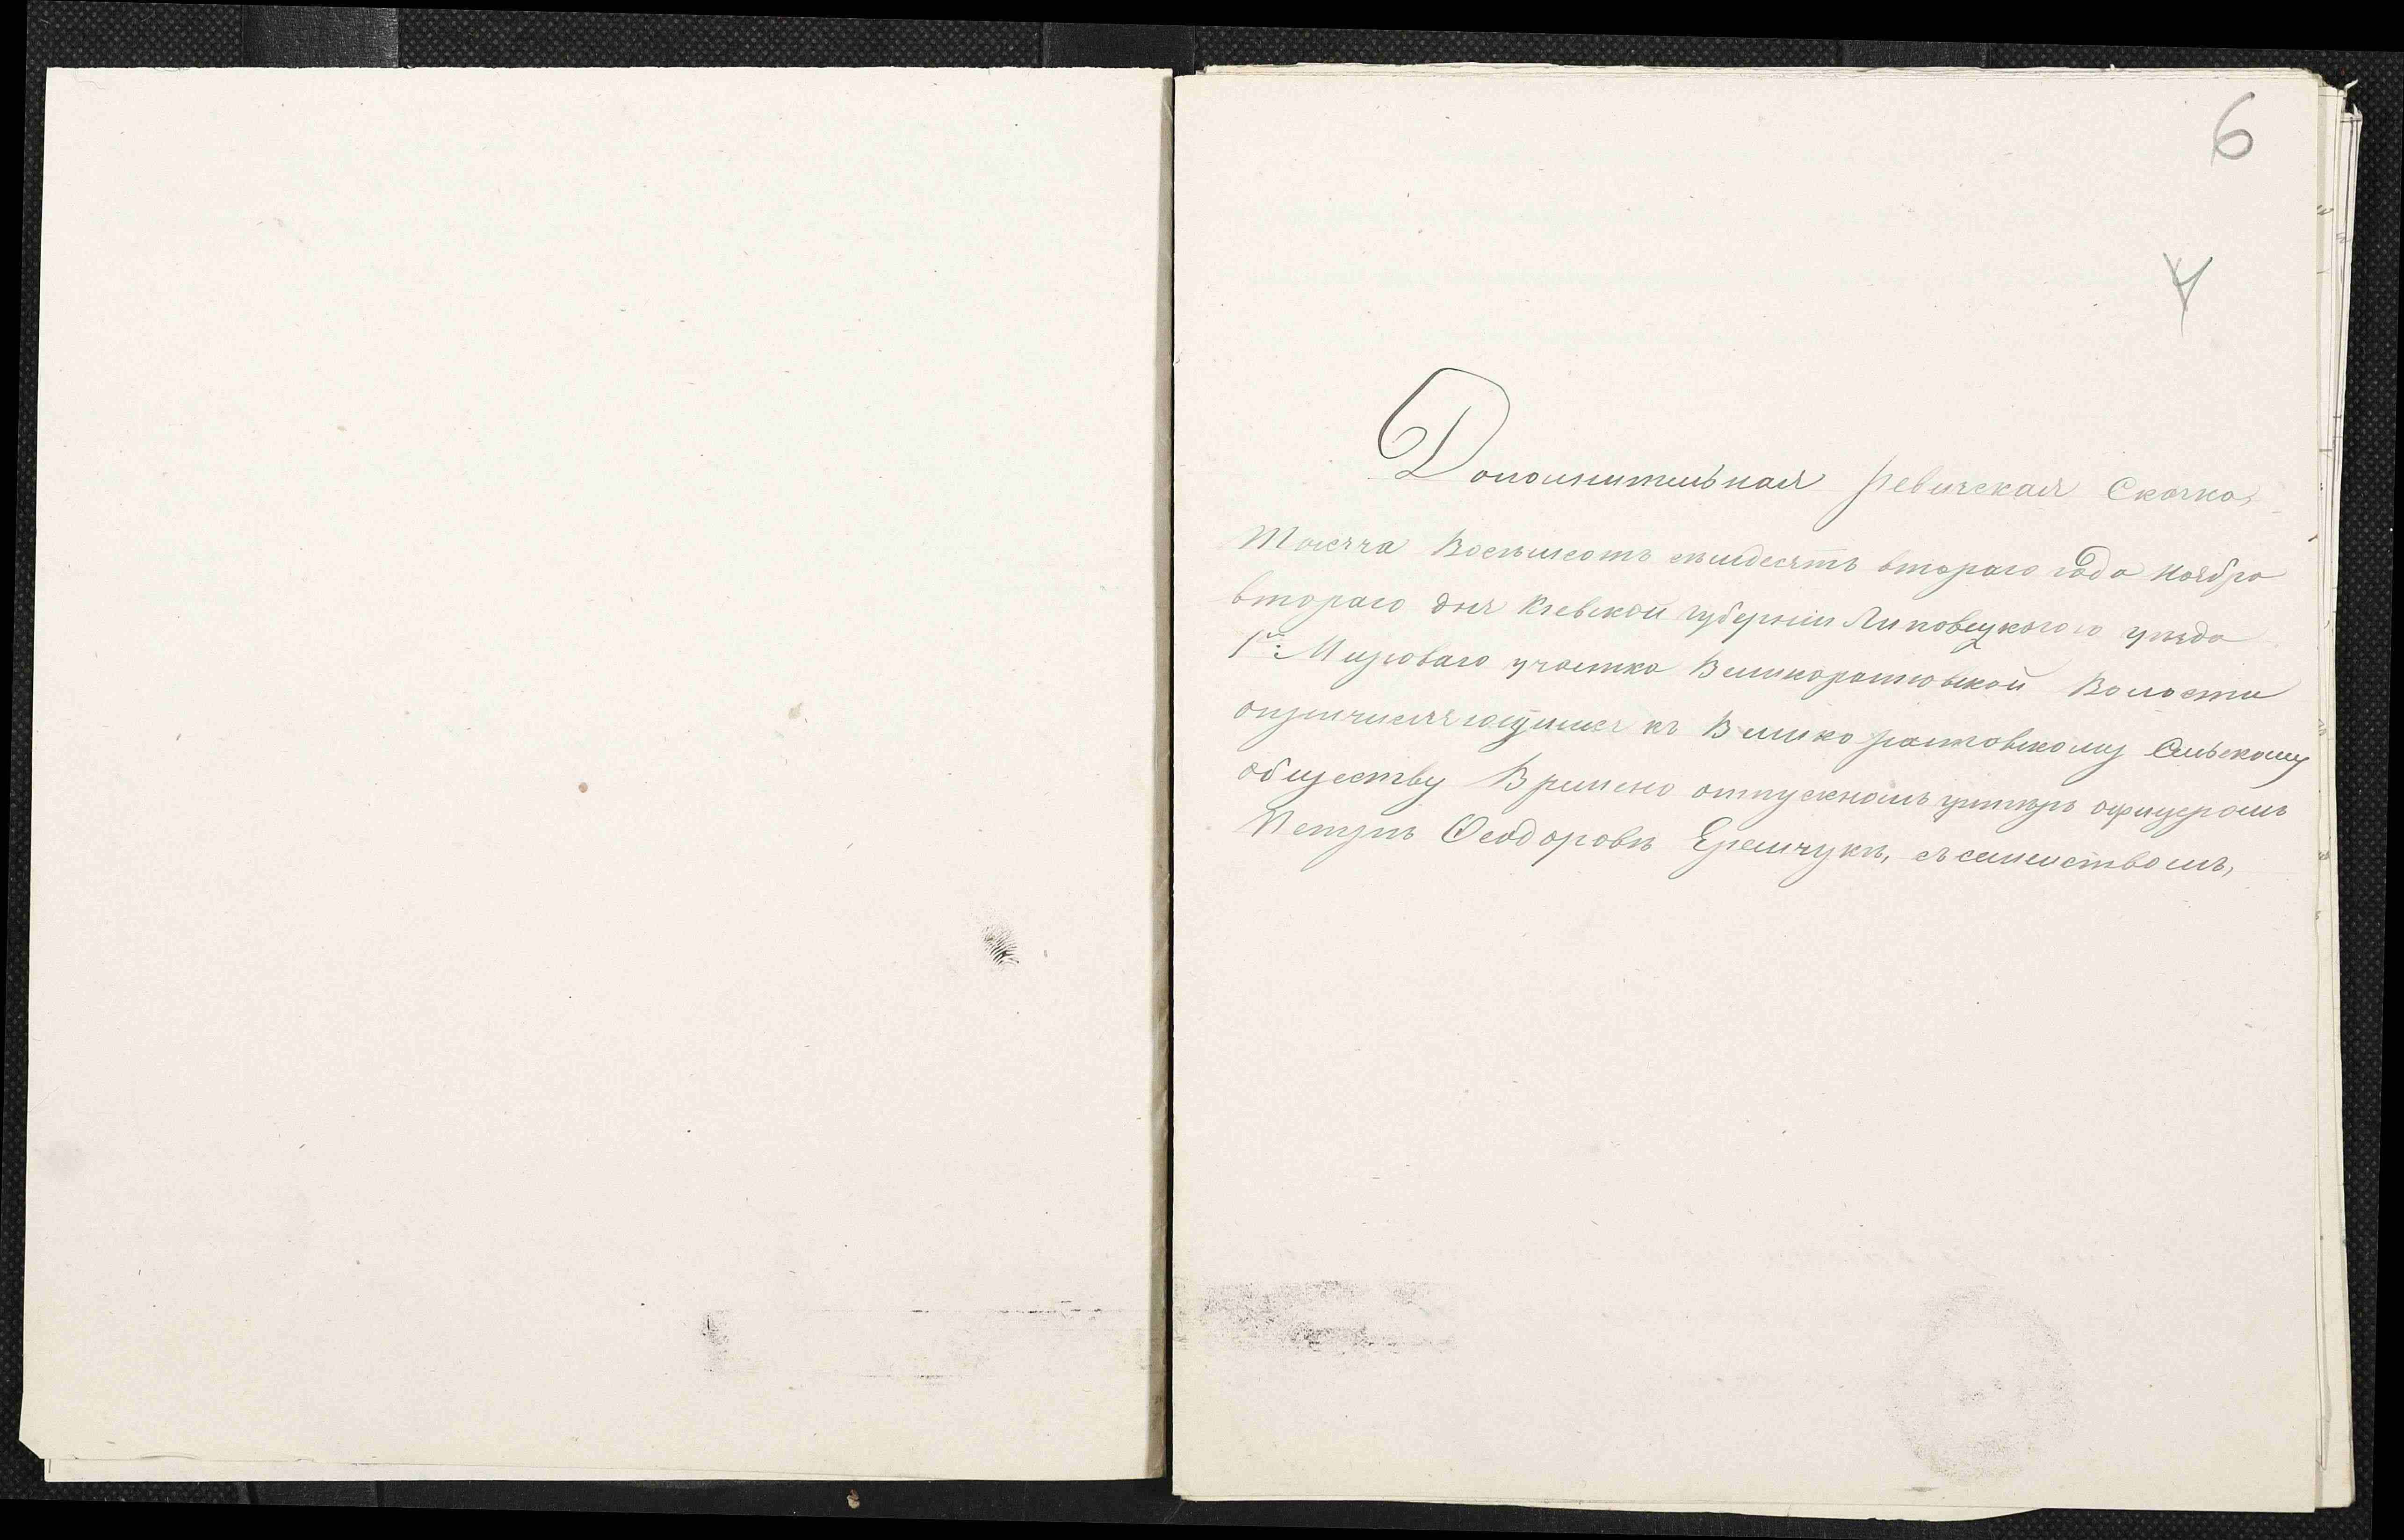 6
4
Дополнительная ревизская сказка,
Тысяча восемьсот семдесятъ втораго года ноября
втораго дня Кіевской губерніи Липовецкого уѣзда
1го Мироваго участка Великоростовской Волости
опричисляющимся къ Великоростовскому Сельскому
обществу Времено отпускномъ унтеръ офицеромъ
Петръ Феодоровъ Еремчукъ, съ семействомъ,